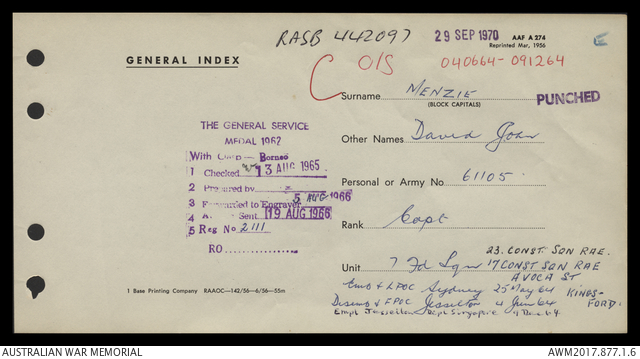 RASB 442097
29 SEP 1970
AAF A 274
Reprinted Mar, 1956
E
GENERAL INDEX
C O/S
040664-091264
Surname MENZIE
(BLOCK CAPITALS)
PUNCHED
THE GENERAL SERVICE
MEDAL 1962
With Clasp — Borneo
1 Checked 13 AUG 1965
2 Prepared by
3 Forwarded to Engraver 5 AUG 1966
4 Sent 19 AUG 1966
5 Reg No 2111
RO
Other Names David John
Personal or Army No 61105
Rank Capt
23. CONST. SQN RAE.
Unit 7 Fd Sqn 17 CONST SQN RAE
AVOCA ST
KINGSFORD.
Emb & LPOC Sydney 25 May 64
Disemb & FPOC Jesselton 4 Jun 64
Empl Jesselton Dept Singapore 9 Dec 64
1 Base Printing Company RAAOC—142/56—6/56—55m
AUSTRALIAN WAR MEMORIAL
AWM2017.877.1.6